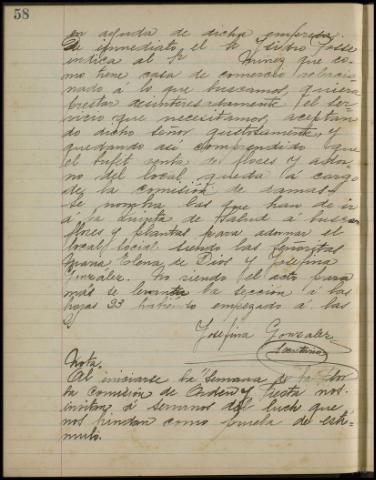 58
en ayuda de dicha empresa.
De inmediato el Sr Isidro Fosse
indica al Sr Nuñez que co-
mo tiene casa de comercio relacio-
nado á lo que buscamos, quiera
prestar desinteresadamente el ser-
vicio que necesitamos, aceptan-
do dicho señor gustosamente, y
quedando así comprendido que
el bufet venta de flores y ador-
no del local queda á cargo
de la comisión de damas.
Se nombra las que han de ir
á la Quinta de Salud á buscar
flores y plantas para adornar el
local social siendo las Señoritas
Maria Elena de Dios y Josefina
González. No siendo el acto para
más se levanta la sección á las
horas 23 habiendo empezado á las
Josefina Gonzalez
Nota.
Al iniciarse la "Semana de la Flor
la comisión de Orden y Fiesta nos
invitan á servirnos del luch que
nos brindan como prueba de estí-
mulo.